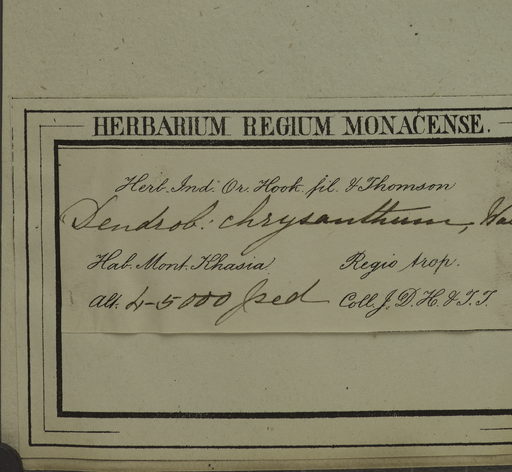 HERBARIUM REGIUM MONACENSE.
Herb. Ind. Or. Hook. fil. & Thomson
Dendrob: chrysanthum, Wa
Hab. Mont. Khasia. Regio trop.
Alt. 4-5000 ped Coll. J. D. H. & T. T.